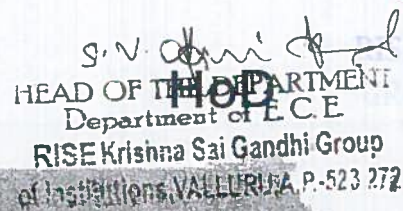 S.V.
HEAD OF THE DEPARTMENT
HoD
Department of E.C.E
RISE Krishna Sai Gandhi Group
of Institutions, VALLURU, A.P.-523 272